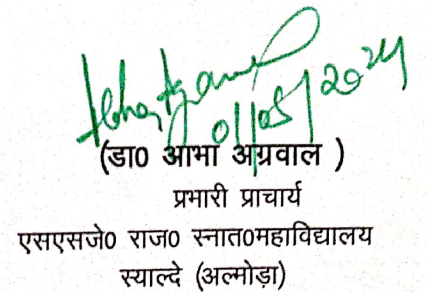 Abha Agarwal
01/05/2024
(डा0 आभा अग्रवाल )
प्रभारी प्राचार्य
एसएसजे0 राज0 स्नात0महाविद्यालय
स्याल्दे (अल्मोड़ा)